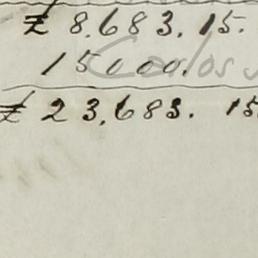 ₤ 8.683.15.
15000.
Carlos
₤ 23.683. 15